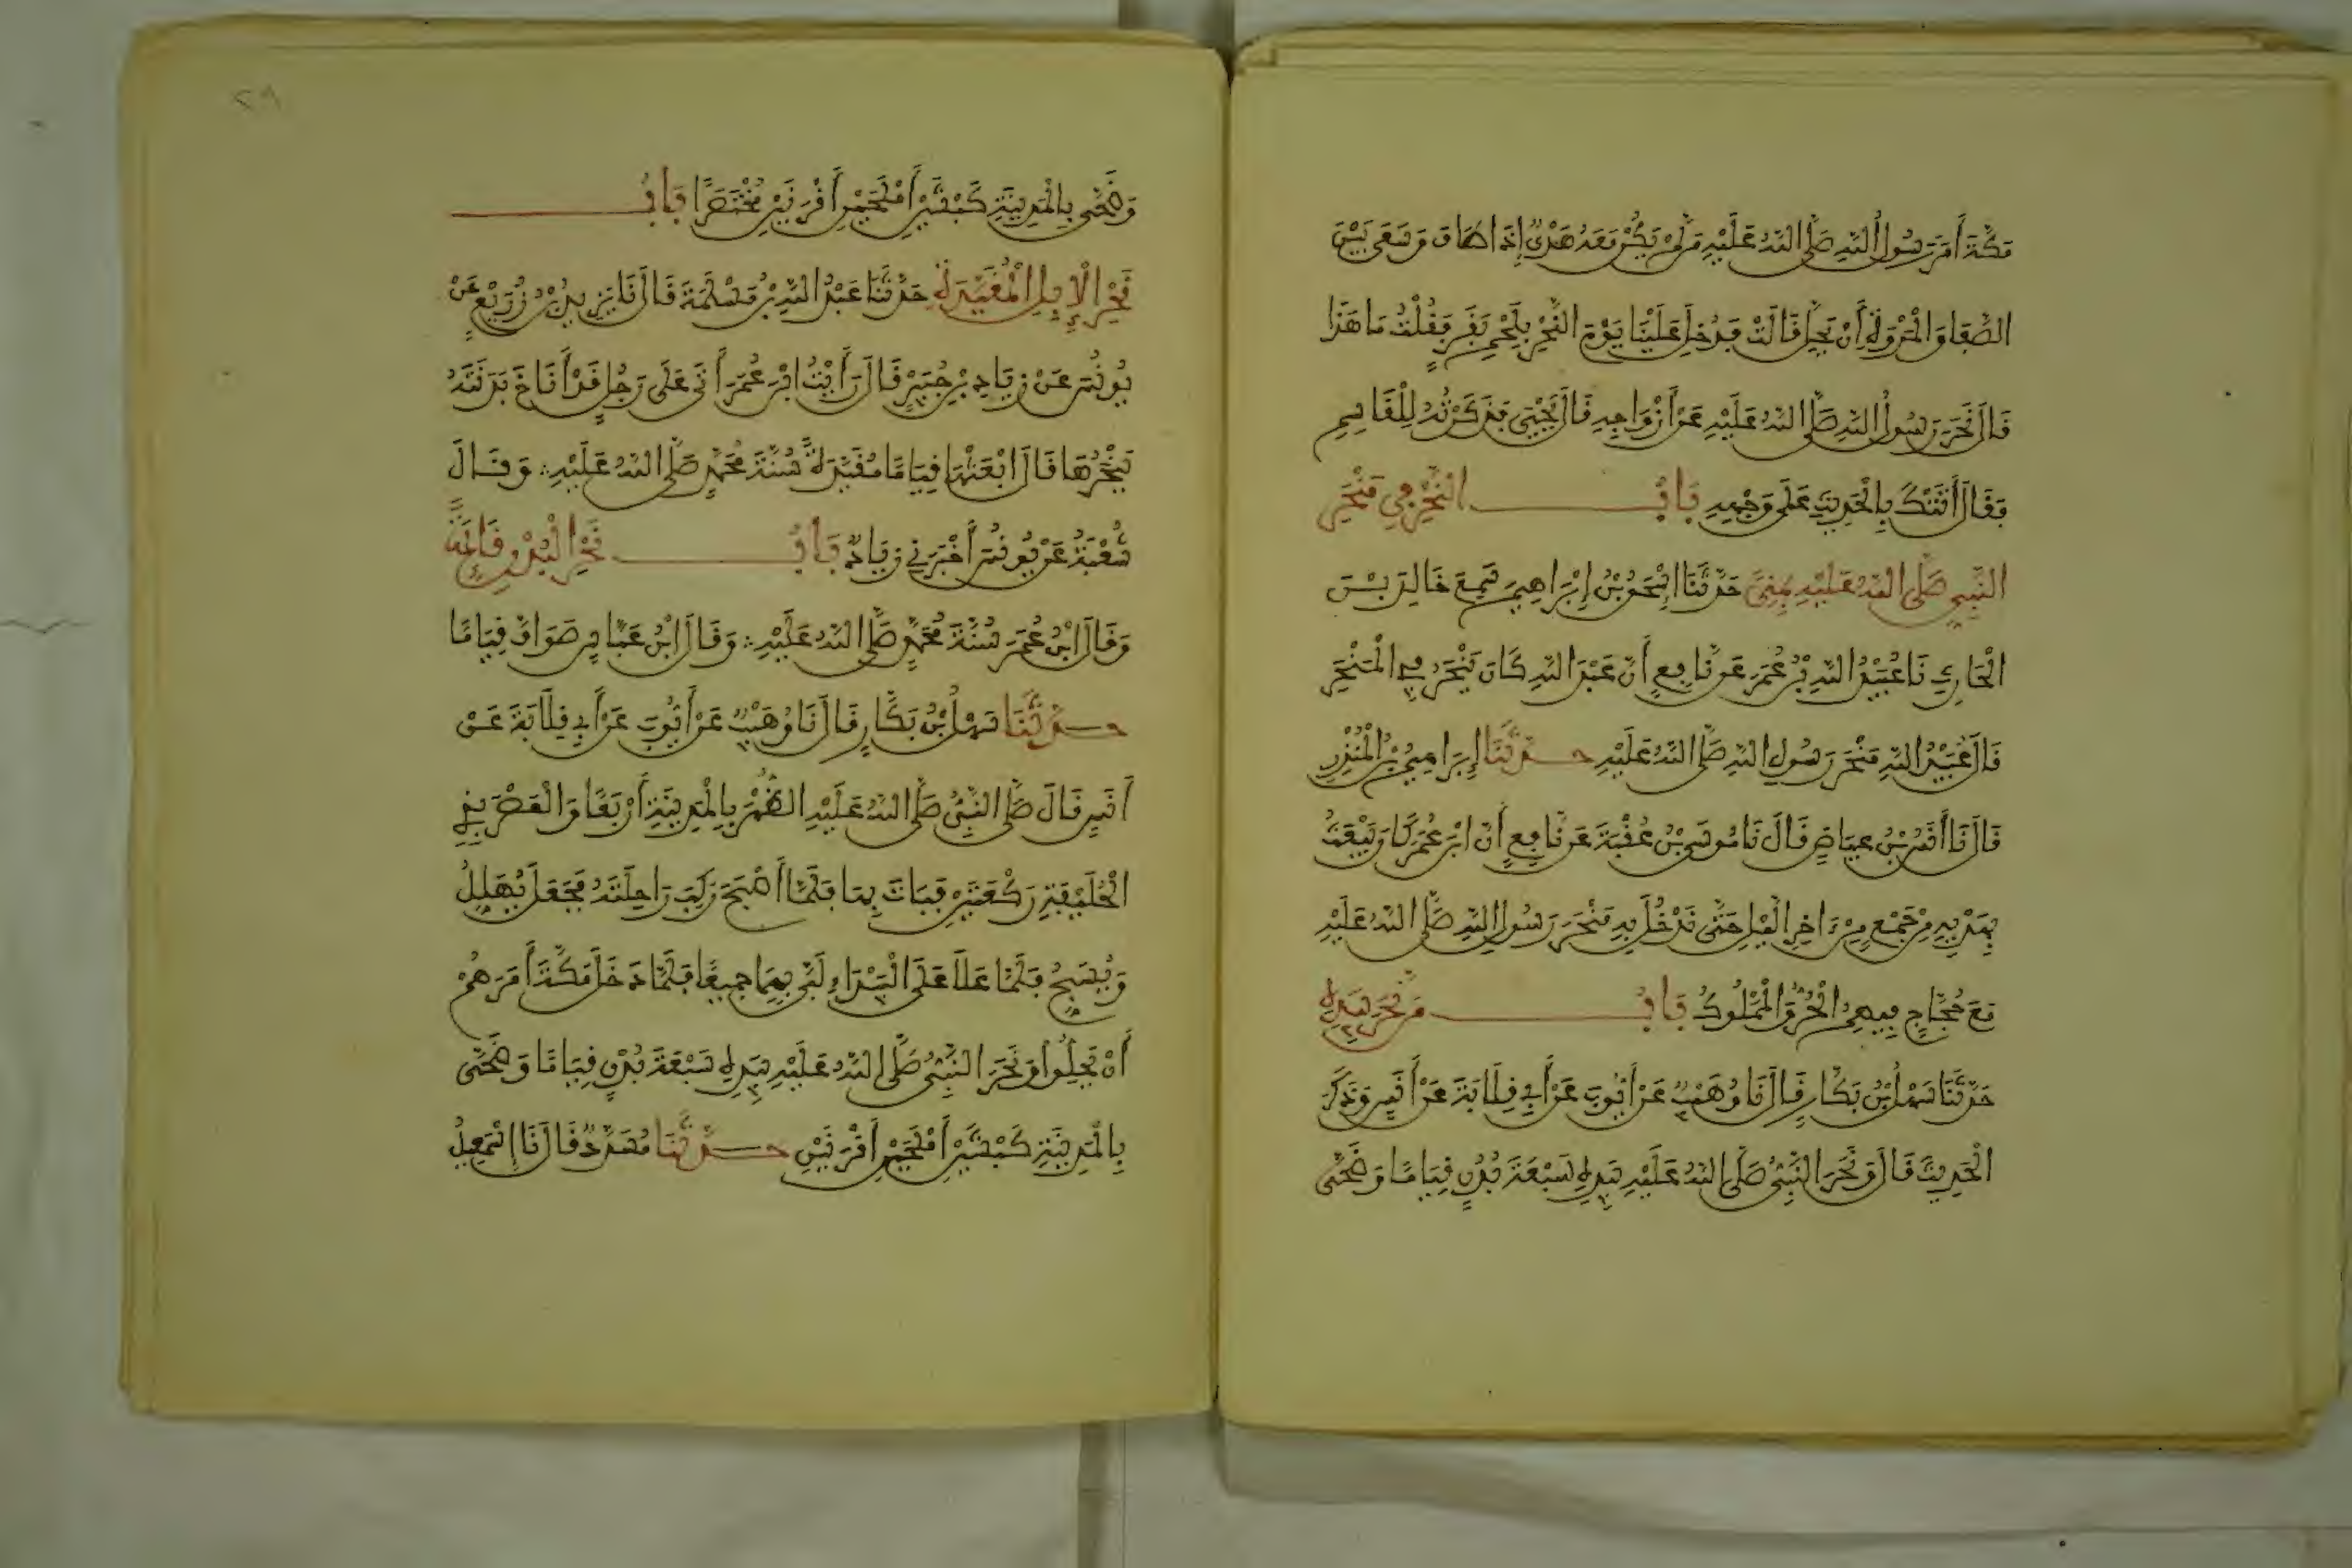 مَكَّةَ أَمَرَ رَسُولُ اللَّهِ صَلَّى اللَّهُ عَلَيْهِ مَن لَّمْ يَكُنْ مَعَهُ هَدْيٌ إِذَا طَافَ وَسَعَى بَيْنَ
الصَّفَا وَالْمَرْوَةِ أَنْ يَحِلَّ قَالَتْ فَدُخِلَ عَلَيْنَا يَوْمَ النَّحْرِ بِلَحْمِ بَقَرٍ فَقُلْتُ مَا هَذَا
قَالَ نَحَرَ رَسُولُ اللَّهِ صَلَّى اللَّهُ عَلَيْهِ عَنْ أَزْوَاجِهِ قَالَ يَحْيَى فَذَكَرْتُهُ لِلْقَاسِمِ
فَقَالَ أَتَتْكَ بِالْحَدِيثِ عَلَى وَجْهِهِ بَابُ النَّحْرِ فِي مَنْحَرِ
النَّبِيِّ صَلَّى اللَّهُ عَلَيْهِ بِمِنًى حَدَّثَنَا إِسْحَقُ بْنُ إِبْرَاهِيمَ سَمِعَ خَالِدَ بْنَ
الْحَارِثِ نَا عُبَيْدُ اللَّهِ بْنُ عُمَرَ عَن نَّافِعٍ أَنَّ عَبْدَ اللَّهِ كَانَ يَنْحَرُ فِي الْمَنْحَرِ
قَالَ عُبَيْدُ اللَّهِ مَنْحَرِ رَسُولِ اللَّهِ صَلَّى اللَّهُ عَلَيْهِ حَدَّثَنَا إِبْرَاهِيمُ بْنُ الْمُنْذِرِ
قَالَ نَا أَنَسُ بْنُ عِيَاضٍ قَالَ نَا مُوسَى بْنُ عُقْبَةَ عَن نَّافِعٍ أَنَّ ابْنَ عُمَرَ كَانَ يَبْعَثُ
بِهَدْيِهِ مِنْ جَمْعٍ مِنْ ءَاخِرِ الَّيْلِ حَتَّى يَدْخُلَ بِهِ مَنْحَرَ رَسُولِ اللَّهِ صَلَّى اللَّهُ عَلَيْهِ
مَعَ حُجَّاجٍ فِيهِمُ الْحُرُّ وَالْمَمْلُوكُ بَابُ مَن نَّحَرَ بِيَدِهِ
حَدَّثَنَا سَهْلُ بْنُ بَكَّارٍ قَالَ نَا وُهَيْبٌ عَنْ أَيُّوبَ عَنْ أَبِي قِلَابَةَ عَنْ أَنَسٍ وَذَكَرَ
الْحَدِيثَ قَالَ وَنَحَرَ النَّبِيُّ صَلَّى اللَّهُ عَلَيْهِ بِيَدِهِ سَبْعَةَ بُدْنٍ قِيَامًا وَضَحَّى
وَضَحَّى بِالْمَدِينَةِ كَبْشَيْنِ أَمْلَحَيْنِ أَقْرَنَيْنِ مُخْتَصَرًا بَابُ
نَحْرِ الْإِبِلِ الْمُقَيَّدَةِ حَدَّثَنَا عَبْدُ اللَّهِ بْنُ مَسْلَمَةَ قَالَ نَا يَزِيدُ بْنُ زُرَيْعٍ عَنْ
يُونُسَ عَنْ زِيَادِ بْنِ جُبَيْرٍ قَالَ رَأَيْتُ ابْنَ عُمَرَ أَتَى عَلَى رَجُلٍ قَدْ أَنَاخَ بَدَنَتَهُ
يَنْحَرُهَا قَالَ ابْعَثْهَا قِيَامًا مُقَيَّدَةً سُنَّةَ مُحَمَّدٍ صَلَّى اللَّهُ عَلَيْهِ ؞ وَقَالَ
شُعْبَةُ عَنْ يُونُسَ أَخْبَرَنِي زِيَادٌ بَابُ نَحْرِ الْبُدْنِ قَائِمَةً
وَقَالَ ابْنُ عُمَرَ سُنَّةَ مُحَمَّدٍ صَلَّى اللَّهُ عَلَيْهِ ؞ وَقَالَ ابْنُ عَبَّاسٍ صَوَافَّ قِيَامًا
حَدَّثَنَا سَهْلُ بْنُ بَكَّارٍ قَالَ نَا وُهَيْبٌ عَنْ أَيُّوبَ عَنْ أَبِي قِلَابَةَ عَنْ
أَنَسٍ قَالَ صَلَّى النَّبِيُّ صَلَّى اللَّهُ عَلَيْهِ الظُّهْرَ بِالْمَدِينَةِ أَرْبَعًا وَالْعَصْرَ بِذِي
الْحُلَيْفَةِ رَكْعَتَيْنِ فَبَاتَ بِهَا فَلَمَّا أَصْبَحَ رَكِبَ رَاحِلَتَهُ فَجَعَلَ يُهَلِّلُ
وَيُسَبِّحُ فَلَمَّا عَلَا عَلَى الْبَيْدَاءِ لَبَّى بِهِمَا جَمِيعًا فَلَمَّا دَخَلَ مَكَّةَ أَمَرَهُمْ
أَنْ يَحِلُّوا وَنَحَرَ النَّبِيُّ صَلَّى اللَّهُ عَلَيْهِ بِيَدِهِ سَبْعَةَ بُدْنٍ قِيَامًا وَضَحَّى
بِالْمَدِينَةِ كَبْشَيْنِ أَمْلَحَيْنِ أَقْرَنَيْنِ حَدَّثَنَا مُسَدَّدٌ قَالَ نَا إِسْمَعِيلُ